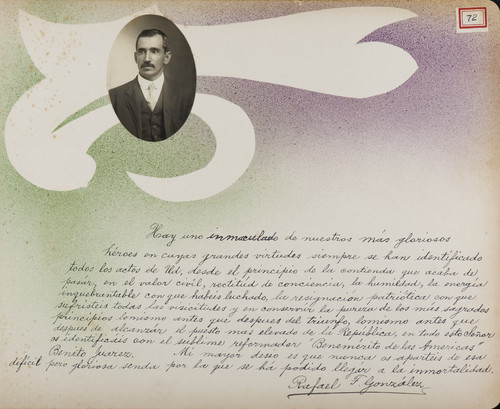 72
Hay uno inmaculado de nuestros más gloriosos
héroes en cuyas grandes virtudes siempre se han identificado
todos los actos de Ud, desde el principio de la contienda que acaba de
pasar, en el valor civil, rectitud de conciencia, la humildad, la energía
inquebrantable con que habéis luchado, la resignación patriótica con que
sufristéis todas las visicitudes y en conservar la pureza de los mas sagrados
principios lo mismo antes que despues del triunfo, lo mismo antes que
despues de alcanzar el puesto más elevado de la República, en todo esto Señor
os identificais con el sublime reformador "Benemérito de las Americas"
Benito Juarez. Mi mayor deseo es que nunca os apartéis de esa
dificil pero gloriosa senda por la que se há podido llegar a la inmortalidad.
Rafael T. González